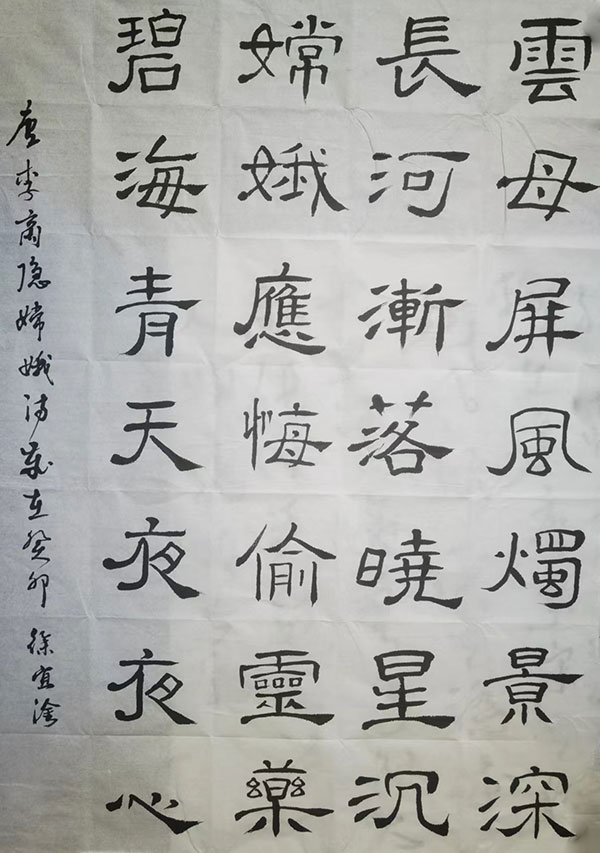 雲母屏風燭景深
長河漸落曉星沉
嫦娥應悔偷靈藥
碧海青天夜夜心
唐李商隐嫦娥诗岁在癸卯 徐宜淦